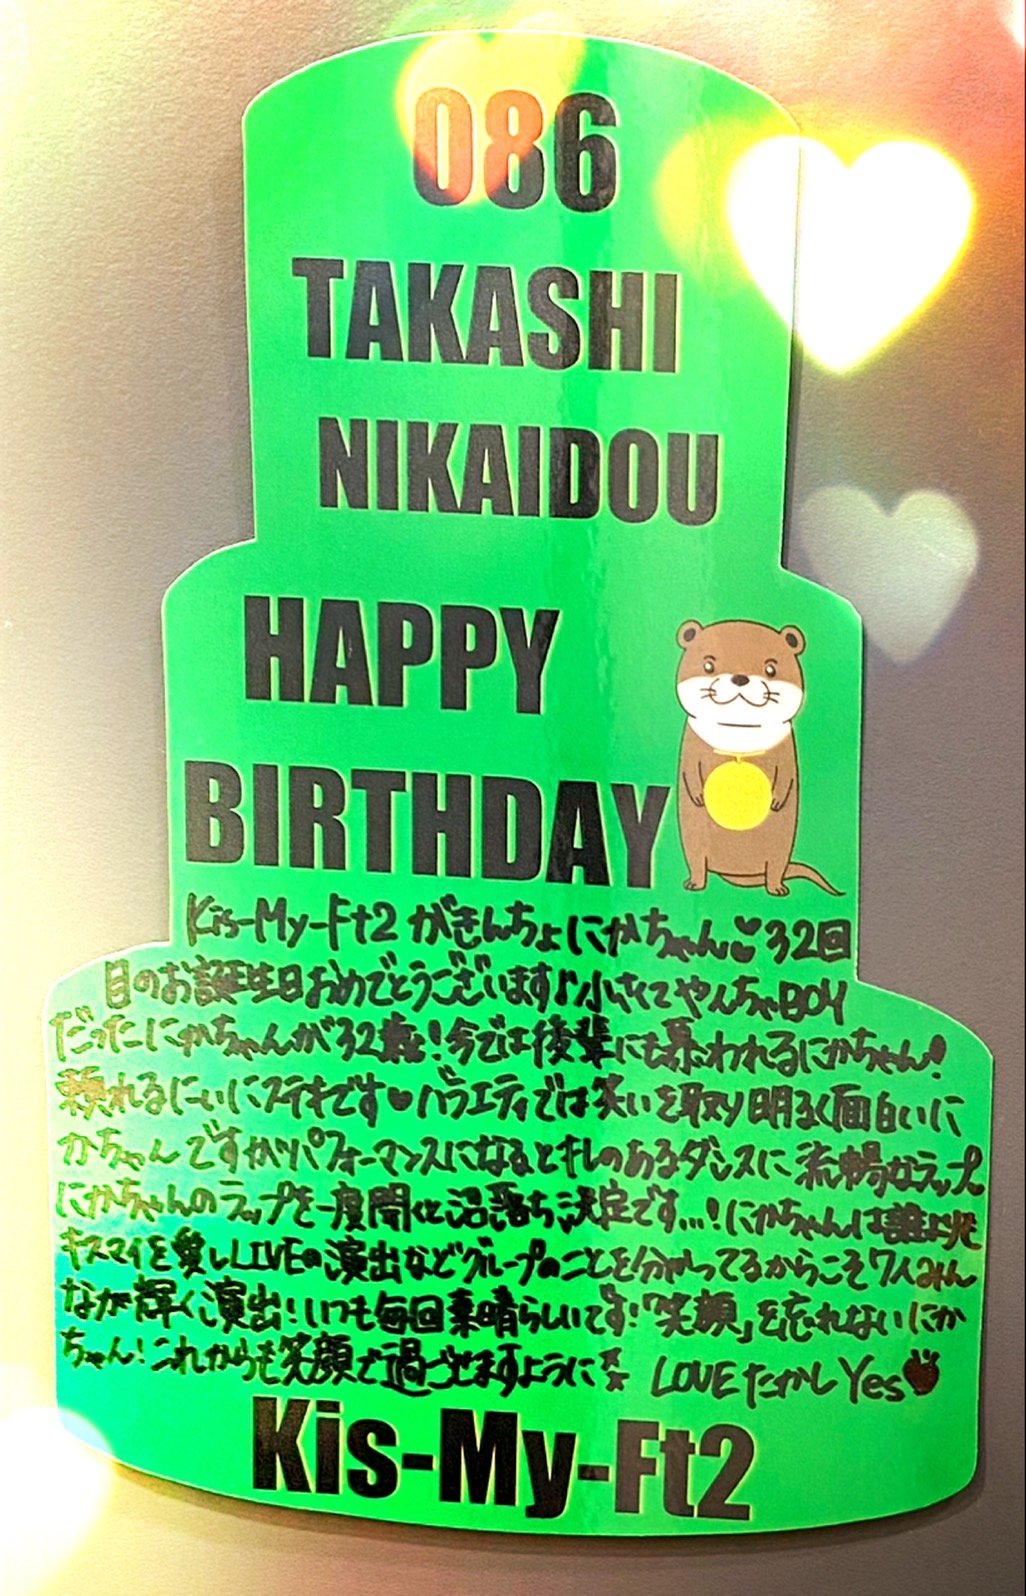 086
TAKASHI
NIKAIDOU
HAPPY
BIRTHDAY
Kis-My-Ft2 がきんちょにかちゃん♥32回
目のお誕生日おめでとうございます♪小さくてやんちゃBOY
だったにかちゃんが32歳!今では後輩にも慕われるにかちゃん!
頼れるにぃにステキです♥バラエティでは笑いを取り明るく面白いに
かちゃんですがパフォーマンスになるとキレのあるダンスに流暢なラップ。
にかちゃんのラップを一度聞くと沼落ち決定です...!にかちゃんは誰よりも
キスマイを愛しLIVEの演出などグループのことを分かってるからこそ7人みん
なが輝く演出!いつも毎回素晴らしいです!「笑顔」を忘れないにか
ちゃん!これからも笑顔で過ごせますように LOVEたかしYes
Kis-My-Ft2